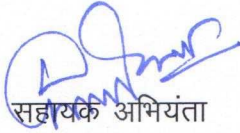 सहायक अभियंता